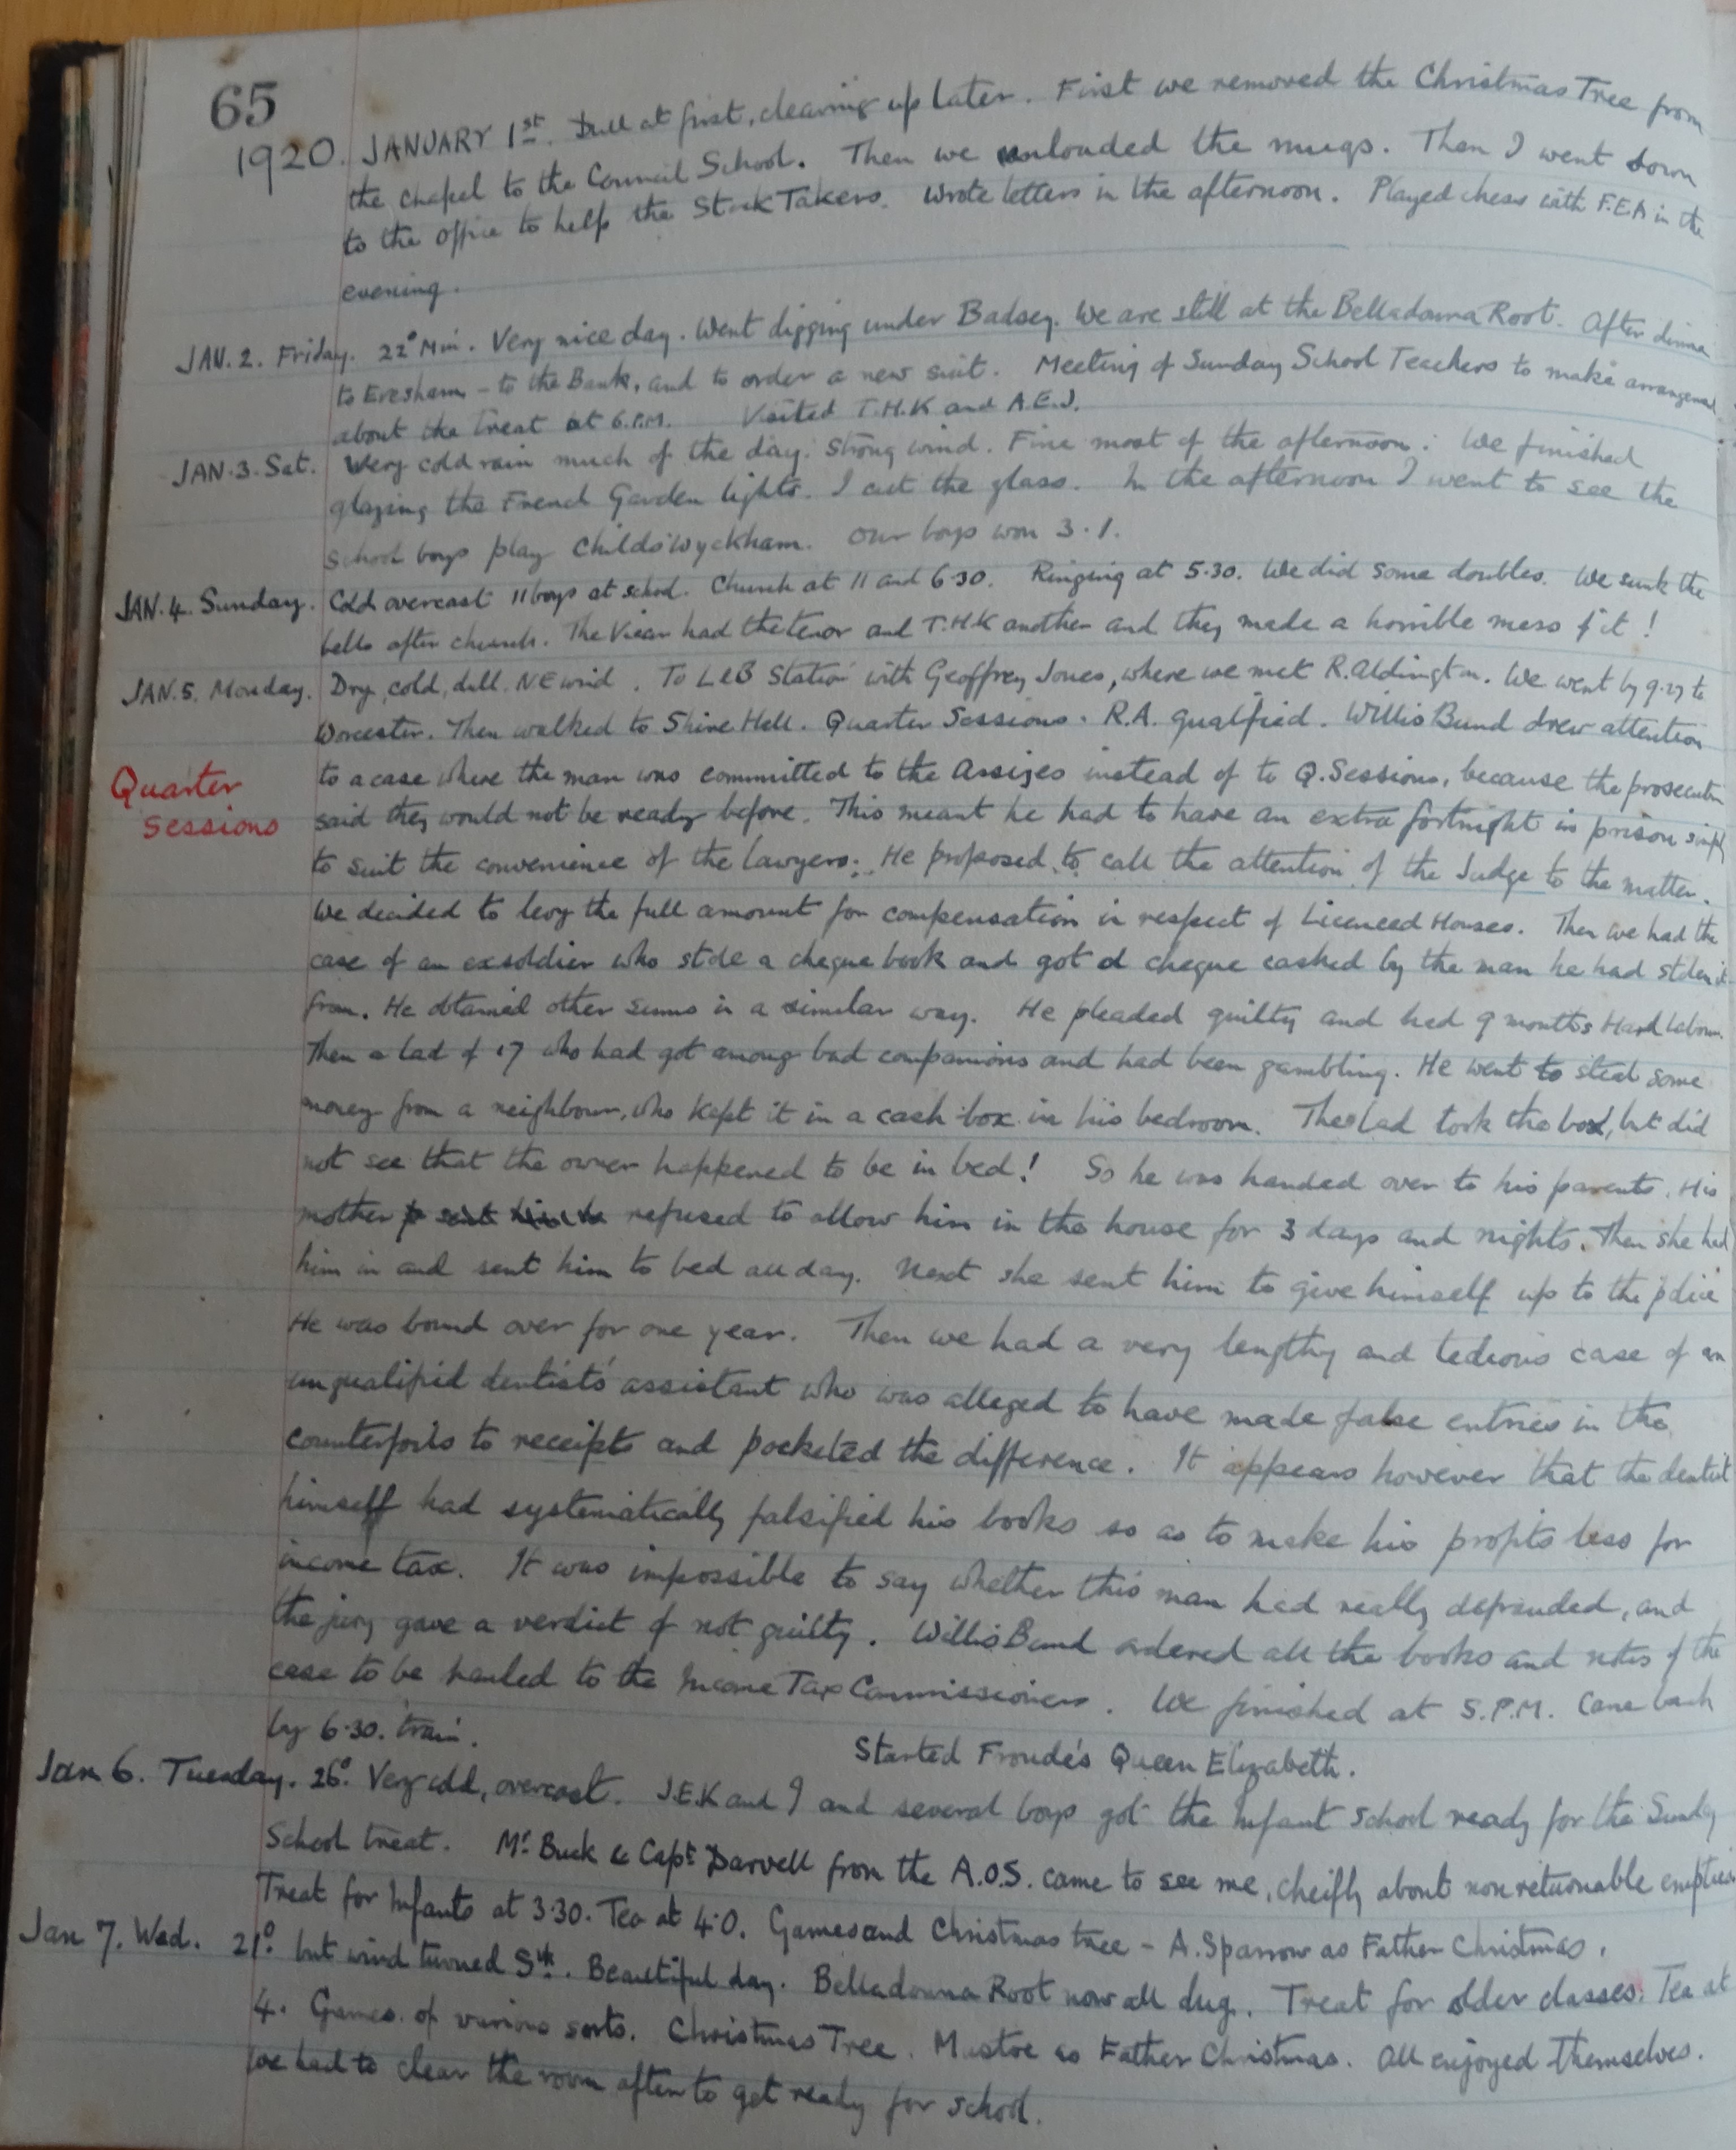 65
1920. JANUARY 1st. Dull at first, clearing up later. First we removed the Christmas Tree from
the chapel to the Council School. Then we unloaded the mugs. Then I went down
to the office to help the Stock Takers. Wrote letters in the afternoon. Played chess with F.E.A in the
evening.
JAN. 2. Friday. 22° Min. Very nice day. Went digging under Badsey. We are still at the Belladonna Root. After dinner
to Evesham - to the Bank, and to order a new suit. Meeting of Sunday School Teachers to make arrangement
about the Treat at 6.P.M. Visited T.H.K and A.E.J.
JAN. 3. Sat. Very cold rain much of the day. Strong wind. Fine most of the afternoon. We finished
glazing the French Garden lights. I cut the glass. In the afternoon I went to see the
School boys play Childswyckham. Our boys won 3-1.
JAN. 4. Sunday. Cold overcast 11 boys at school. Church at 11 and 6.30. Ringing at 5.30. We did some doubles. We sunk the
bells after church. The Vicar had the tenor and T.H.K another and they made a horrible mess of it!
JAN. 5. Monday. Dry, cold, dull. NE wind. To L&B Station with Geoffrey Jones, where we met R. Aldington. We went by 9.27 to
Worcester. Then walked to Shire Hall. Quarter Sessions. R.A. qualfied. Willis Bund drew attention
Quarter Sessions
to a case where the man was committed to the Assizes instead of to Q. Sessions, because the prosecution
said they would not be ready before. This meant he had to have an extra fortnight in prison simply
to suit the convenience of the lawyers. He proposed to call the attention of the Judge to the matter.
We decided to levy the full amount for compensation in respect of Licenced Houses. Then we had the
case of an exsoldier who stole a cheque book and got a cheque cashed by the man he had stolen it
from. He obtained other sums in a similar way. He pleaded guilty and had 9 months Hard labour.
Then a lad of 17 who had got among bad companions and had been gambling. He went to steal some
money from a neighbour, who kept it in a cash box in his bedroom. The lad took the box, but did
not see that the owner happened to be in bed! So he was handed over to his parents. His
mother refused to allow him in the house for 3 days and nights. Then she had
him in and sent him to bed all day. Next she sent him to give himself up to the police
He was bound over for one year. Then we had a very lengthy and tedious case of an
unqualified dentist's assistant who was alleged to have made false entries in the
counterfoils to receipts and pocketed the difference. It appears however that the dentist
himself had systematically falsified his books so as to make his profits less for
income tax. It was impossible to say whether this man had really defrauded, and
the jury gave a verdict of not guilty. Willis Bund ordered all the books and notes of the
case to be handed to the Income Tax Commissioners. We finished at 5.P.M. Came back
by 6.30. train.
Started Froude's Queen Elizabeth.
Jan 6. Tuesday. 26°. Very cold, overcast. J.E.K and I and several boys got the Infant School ready for the Sunday
School treat. Mr. Buck & Capt Darvell from the A.O.S. came to see me, cheifly about non returnable empties.
Treat for Infants at 3.30. Tea at 4.0. Games and Christmas tree - A. Sparrow as Father Christmas.
Jan 7. Wed. 21° but wind turned Sth. Beautiful day. Belladonna Root now all dug. Treat for older classes. Tea at
4. Games of various sorts. Christmas Tree. Mustoe as Father Christmas. All enjoyed themselves.
We had to clear the room after to get ready for school.